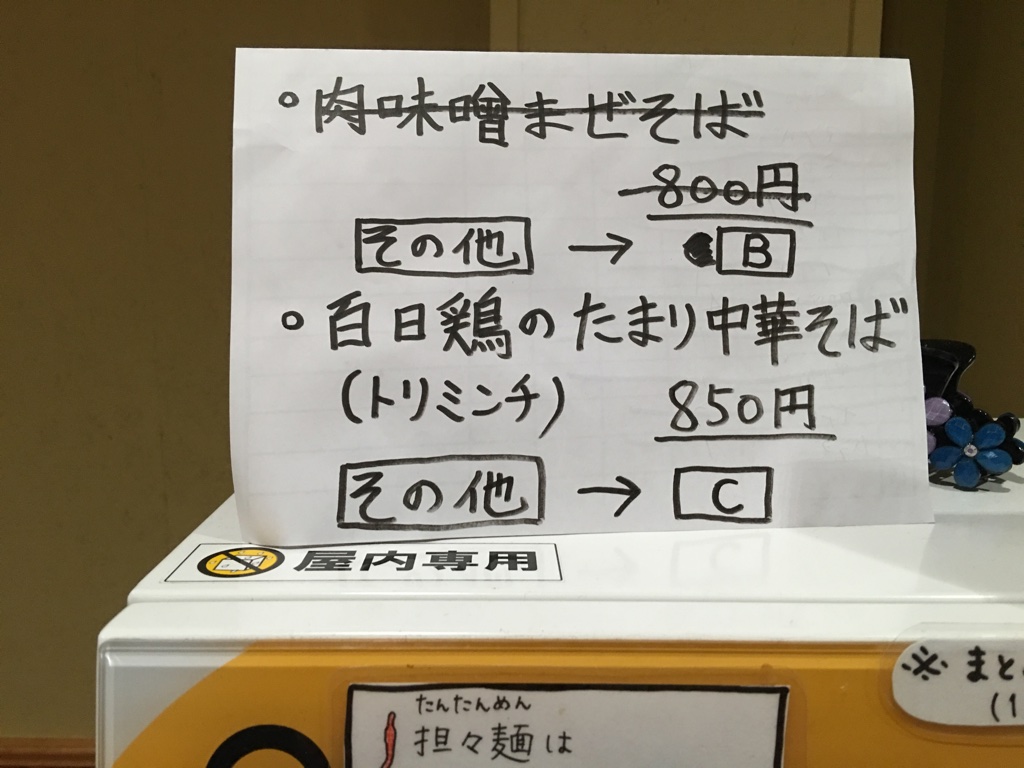 。肉味噌まぜそば
800円
その他 → B
。百日鶏のたまり中華そば
(トリミンチ) 850円
その他 → C
屋内専用
※ まと
(1
たんたんめん
担々麺は